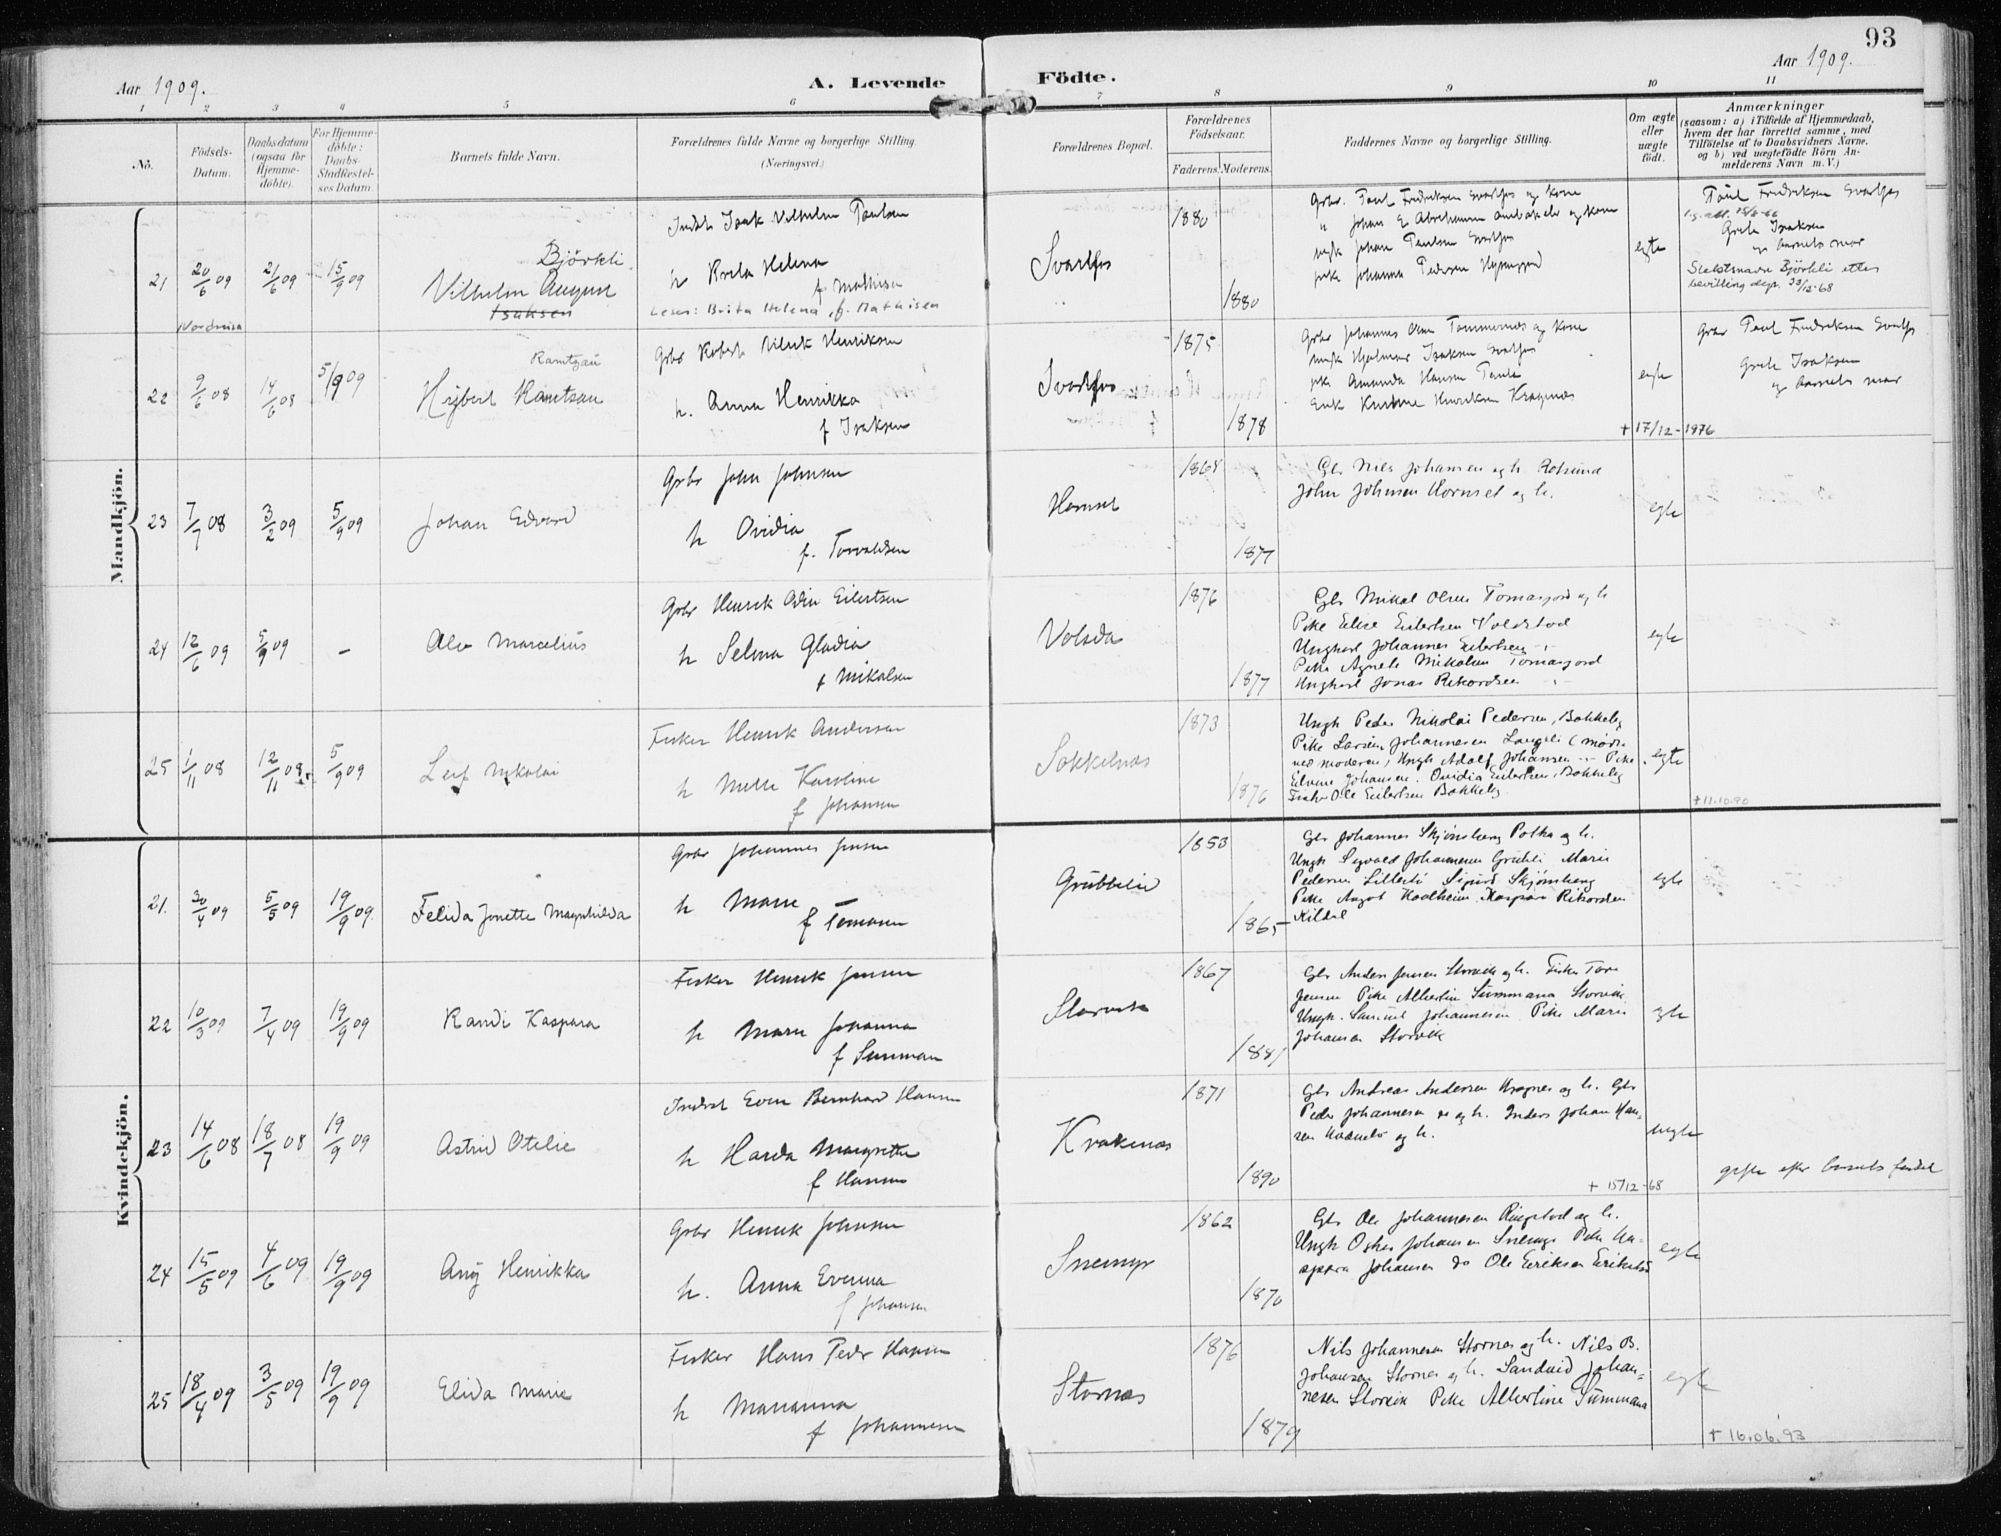 93
Aar 1909.
A. Levende Födte.
Aar 1909.
1 2 3 4 5 6 7 8 9 10 11
No.
Födsels-
Datum.
Daabsdatum
(ogsaa for
Hjemme-
döbte).
For Hjemme-
döbte:
Daabs-
Stadfæstel-
ses Datum.
Barnets fulde Navn.
Forældrenes fulde Navne og borgerlige Stilling.
(Næringsvei.)
Forældrenes Bopæl.
Forældrenes
Födselsaar.
Faderens. Moderens.
Faddernes Navne og borgerlige Stilling.
Om ægte
eller
uægte
født.
Anmærkninger
(saasom: a) i Tilfælde af Hjemmedaab,
hvem der har forrettet samme, med
Tilföielse af to Daabsvidners Navne,
og b) ved uægtefödte Börn An-
melderens Navn m. V.)
Mandkjön.
21 20/6 09 21/6 09 15/9 09
Björkli
Vilhelm August
Isaksen
Nordreisa
Indst Isak Vilhelm Paulsen
h Helena
f Mathisen
Leses: Brita Helena, f. Mathisen
Svartfos
1880
1880
Grbr. Paul Fredriksen Svartfos og kone
Johan Paulsen Svartfos
Johanna Pedersen
egte
Paul Fredriksen Svartfos
Grete Isaksen
og barnets mor
Slektsnavn Björkli etter
bevilling 23/12-68
22 9/6 08 14/6 08 5/9 09
Ramtzau
Hilbert Ramtsau
Grbr Robert Henriksen
h. Anna Henrikka
f Isaksen
Svartfos
1875
1878
Grbr Johannes Olsen Tømmernes og kone
Hjalmar Isaksen Svartfos
Amanda Hansen
Henriksen Kragnæs
egte
† 17/12-1976
Grbr Paul Fredriksen Svartfos
Grete Isaksen
og barnets mor
23 7/7 08 3/2 09 5/9 09
Johan Edvard
Grbr John Johnsen
h Ovidia
f. Torvaldsen
Hamnet
1868
1877
Gbr Nils Johansen og h. Rotsund
John Johnsen Hornset og h.
egte
24 12/6 09 5/9 09 –
Alv Marcelius
Grbr Henrik Odin Eilertsen
h Selma Gladia
f Mikalsen
Volsda
1876
1877
Gbr Mikal Olsen Tomasjord og h
Pike Elise Eilertsen Voldstad
Ungkarl Johannes Eilertsen
Pike Agnete Mikalsen Tomasjord
Ungkarl Jonas Rikardsen
egte
25 1/11 08 12/11 08 5/9 09
Leif Nikolai
Fisker Henrik Andersen
h Mette Karoline
f Johansen
Sokkelnæs
1873
1876
Ungk Peder Nikolai Pedersen, Bakkeby
Pike Larsine Johannesen Langeli (mødte
med moderen) Ungk Adolf Johansen Pike
Elvine Johansen. Ovidia Eilertsen, Bakkeby
Fisker Ole Eilertsen Bakkeby
egte
† 11.10.90
Kvindekjön.
21. 30/4 09 5/5 09 19/9 09
Felida Jonette Magnhilda
Grbr Johannes Jensen
h Marie
f Tomasen
Grubbelid
1853
1865
Gbr Johannes Skjönsberg Potka og h.
Ungk Sigvald Johannesen Marie
Pedersen Sigurd Skjönsberg
Pike Kaspara Rikardsen
Kildal
egte
22 10/3 09 7/4 09 19/9 09
Randi Kaspara
Fisker Henrik Jensen
h Marie Johanna
f Summan
Storvik
1867
1881
Gbr Anders Jensen Storvik og h. Fisker Tore
Jensen Pike Albertine Summana Storvik
Ungk. Samuel Johannesen Pike Marie
Johansen Storvik
egte
23 14/6 08 18/7 08 19/9 09
Astrid Otelie
Indst Even Bernhard Hansen
h Harda Margrethe
f Hansen
Krakenæs
1871
1890
Gbr Andreas Andersen og h. Gbr
Peder Johannesen og h. Inders Johan Han-
sen og h.
uegte
† 15/12-68
gifte efter barnets fødsel
24 15/5 09 4/6 09 19/9 09
Any Henrikka
Grbr Henrik Johnsen
h. Anna Evenna
f Johansen
Snemyr
1862
1870
Gbr Ole Johannesen Ringstad og h.
Ungk Oskar Johansen Snemyr Pike Ka-
spara Johansen do Ole Eriksen Erikstad
egte
25 18/4 09 3/5 09 19/9 09
Elida Marie
Fisker Hans Peder Hansen
h Marianna
f Johannesen
Stornæs
1876
1879
Nils Johannesen Stornes og h. Nils B.
Johansen Stornes og h. Sandvid Johan-
nesen Storvik Pike Albertine Summana
egte
† 16.06.93